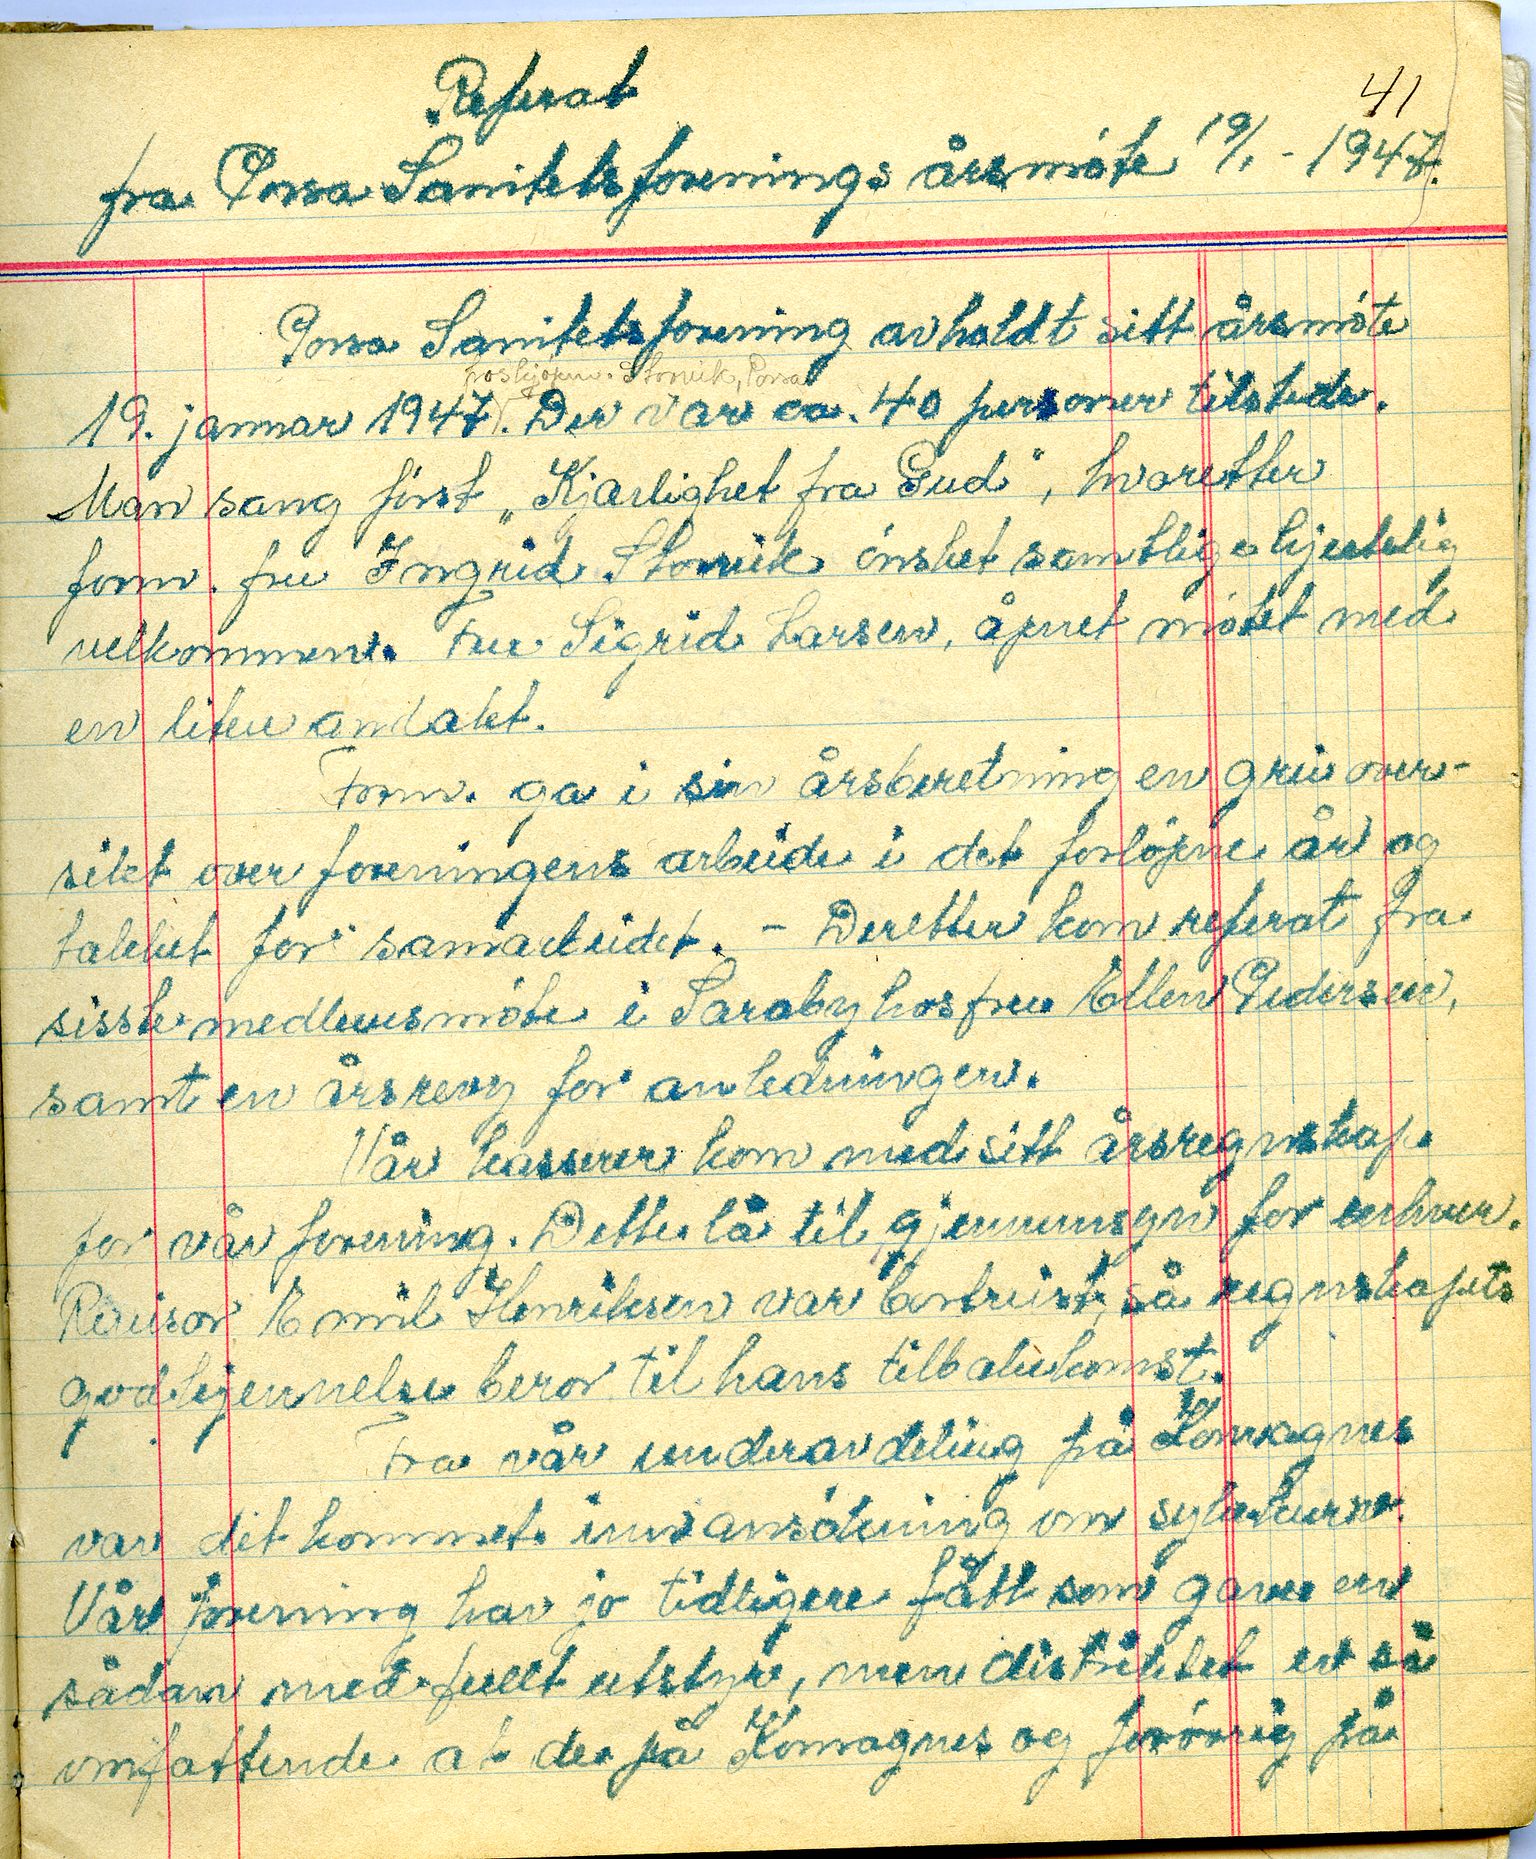 41
Referat
fra Porsa Sanitetsforenings årsmöte 19/1 - 1947.
Porsa Sanitetsforening avholdt sitt årsmöte
hos kjøpm. Storvik, Porsa
19. januar 1947. Der var ca. 40 personer tilstede.
Man sang först „Kjærlighet fra Gud", hvoretter
form. fru Ingrid Storvik önsket samtlige hjertelig
velkommen. Fru Sigrid Larsen, åpnet mötet med
en liten andakt.
Form. ga i sin årsberetning en grei over-
sikt over foreningens arbeide i det forlöpne år og
takket for samarbeidet. - Deretter kom referat fra
siste medlemsmöte i Saraby hos fru Ellen Pedersen,
samt en årsrevy for anledningen.
Vår kasserer kom med sitt årsregnskap
for vår forening. Dette lå til gjennemsyn for enhver.
Revisor Emil Henriksen var bortreist, så regnskapets
godkjennelse beror til hans tilbakekomst.
Fra vår underavdeling på Komagnes
var det kommet inn ansökning om sykekurv.
Vår forening har jo tidligere fått som gave en
sådan med fullt utstyr, men distriktet er så
omfattende at de på Komagnes og forövrig på